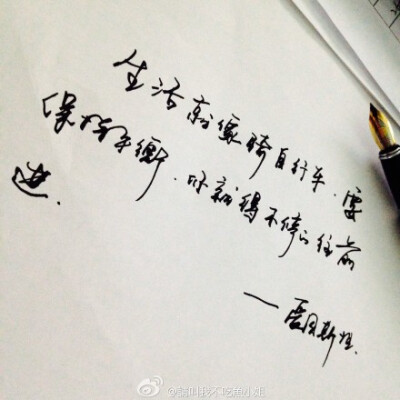 生活就像骑自行车.要
保持平衡.你就得不停的往前
进.
——爱因斯坦.